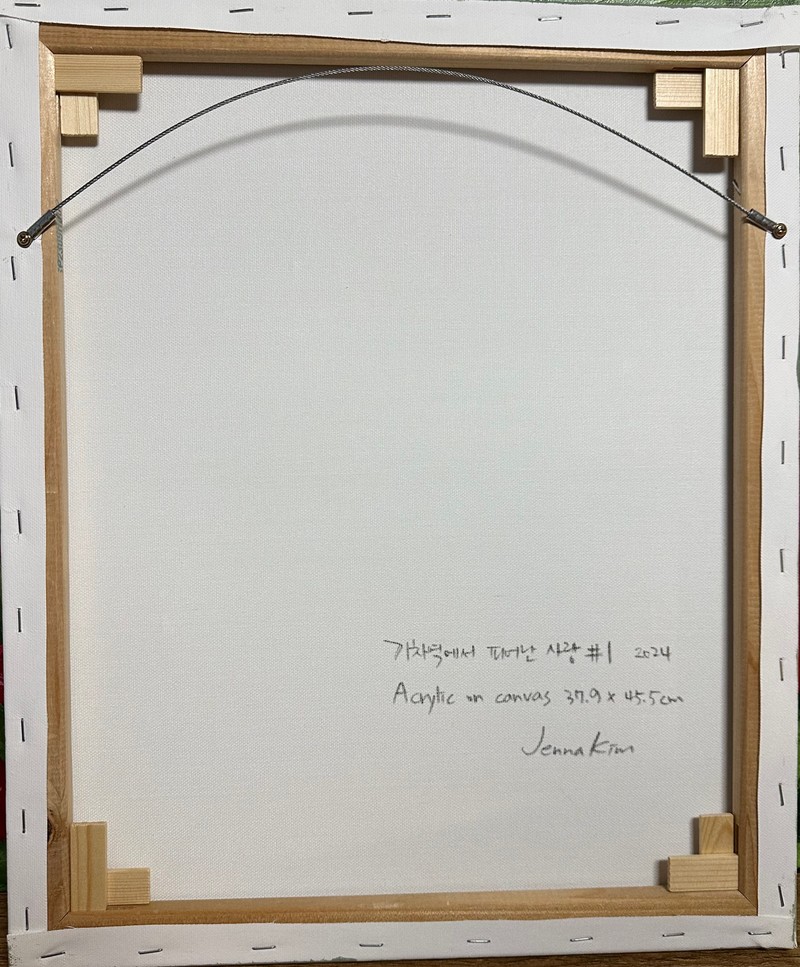 기차역에서 피어난 사랑 #1 2024
Acrylic on canvas 37.9 x 45.5cm
Jenna Kim